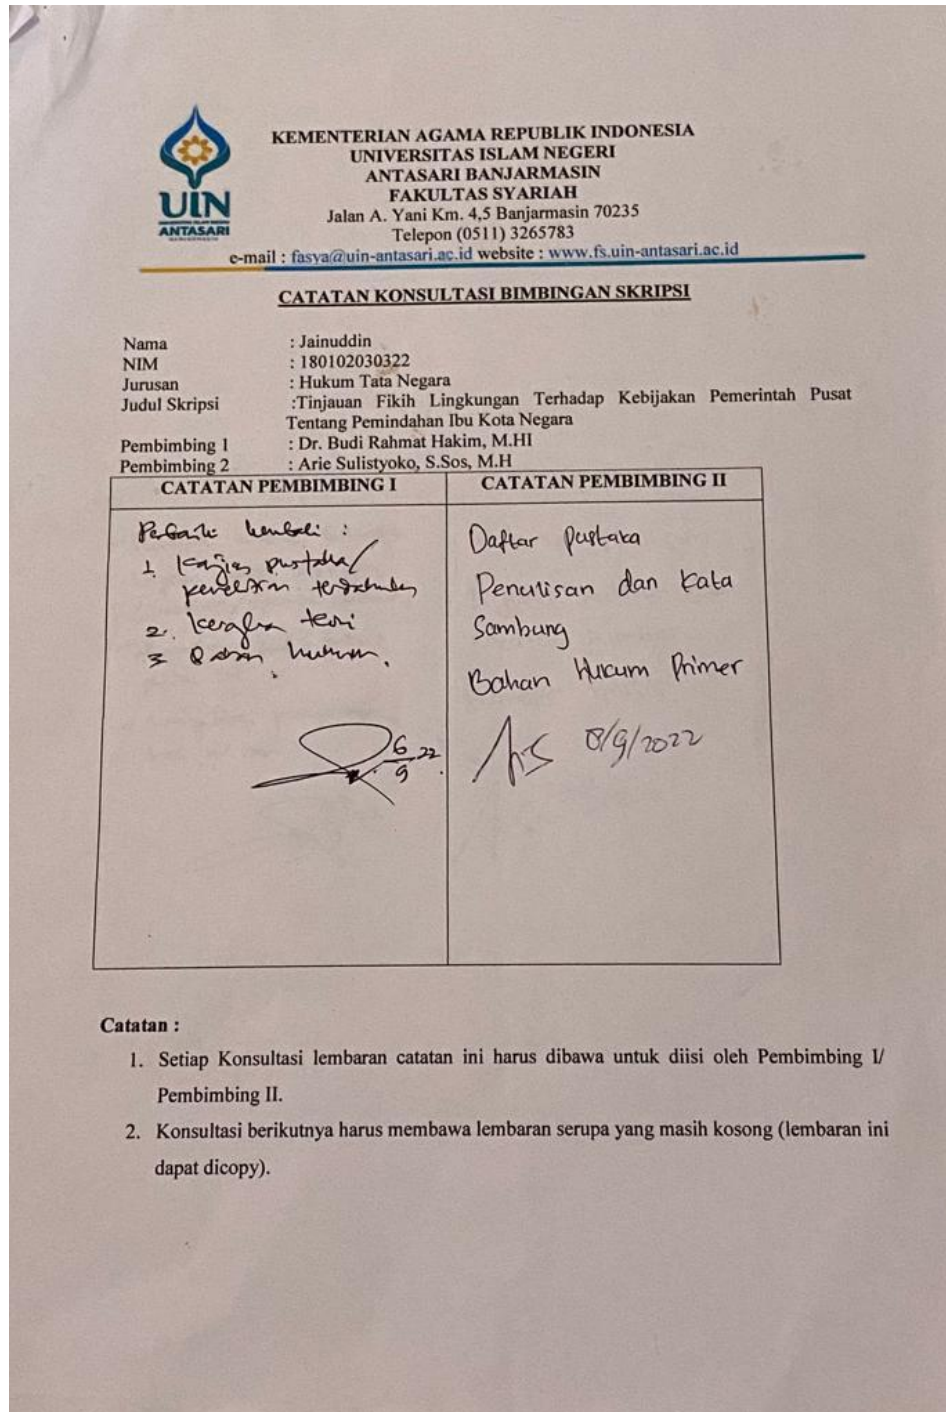 KEMENTERIAN AGAMA REPUBLIK INDONESIA
UNIVERSITAS ISLAM NEGERI
ANTASARI BANJARMASIN
FAKULTAS SYARIAH
Jalan A. Yani Km. 4,5 Banjarmasin 70235
Telepon (0511) 3265783
e-mail : fasya@uin-antasari.ac.id website : www.fs.uin-antasari.ac.id
UIN
ANTASARI
CATATAN KONSULTASI BIMBINGAN SKRIPSI
Nama : Jainuddin
NIM : 180102030322
Jurusan : Hukum Tata Negara
Judul Skripsi :Tinjauan Fikih Lingkungan Terhadap Kebijakan Pemerintah Pusat
Tentang Pemindahan Ibu Kota Negara
Pembimbing 1 : Dr. Budi Rahmat Hakim, M.HI
Pembimbing 2 : Arie Sulistyoko, S.Sos, M.H
CATATAN PEMBIMBING I
Perbaiki kembali :
1. Kajian pustaka/
penelitian terdahulu
2. Kerangka teori
3 Bahan hukum.
6/9 22
CATATAN PEMBIMBING II
Daftar pustaka
Penulisan dan kata
Sambung
Bahan Hukum Primer
8/9/2022
Catatan :
1. Setiap Konsultasi lembaran catatan ini harus dibawa untuk diisi oleh Pembimbing I/
Pembimbing II.
2. Konsultasi berikutnya harus membawa lembaran serupa yang masih kosong (lembaran ini
dapat dicopy).